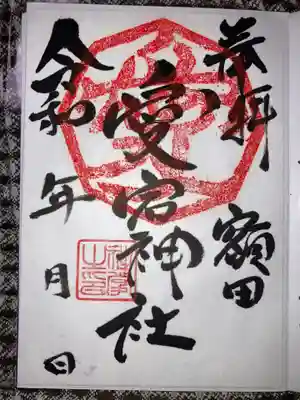 奉拝 額田
愛宕神社
令和 年 月 日